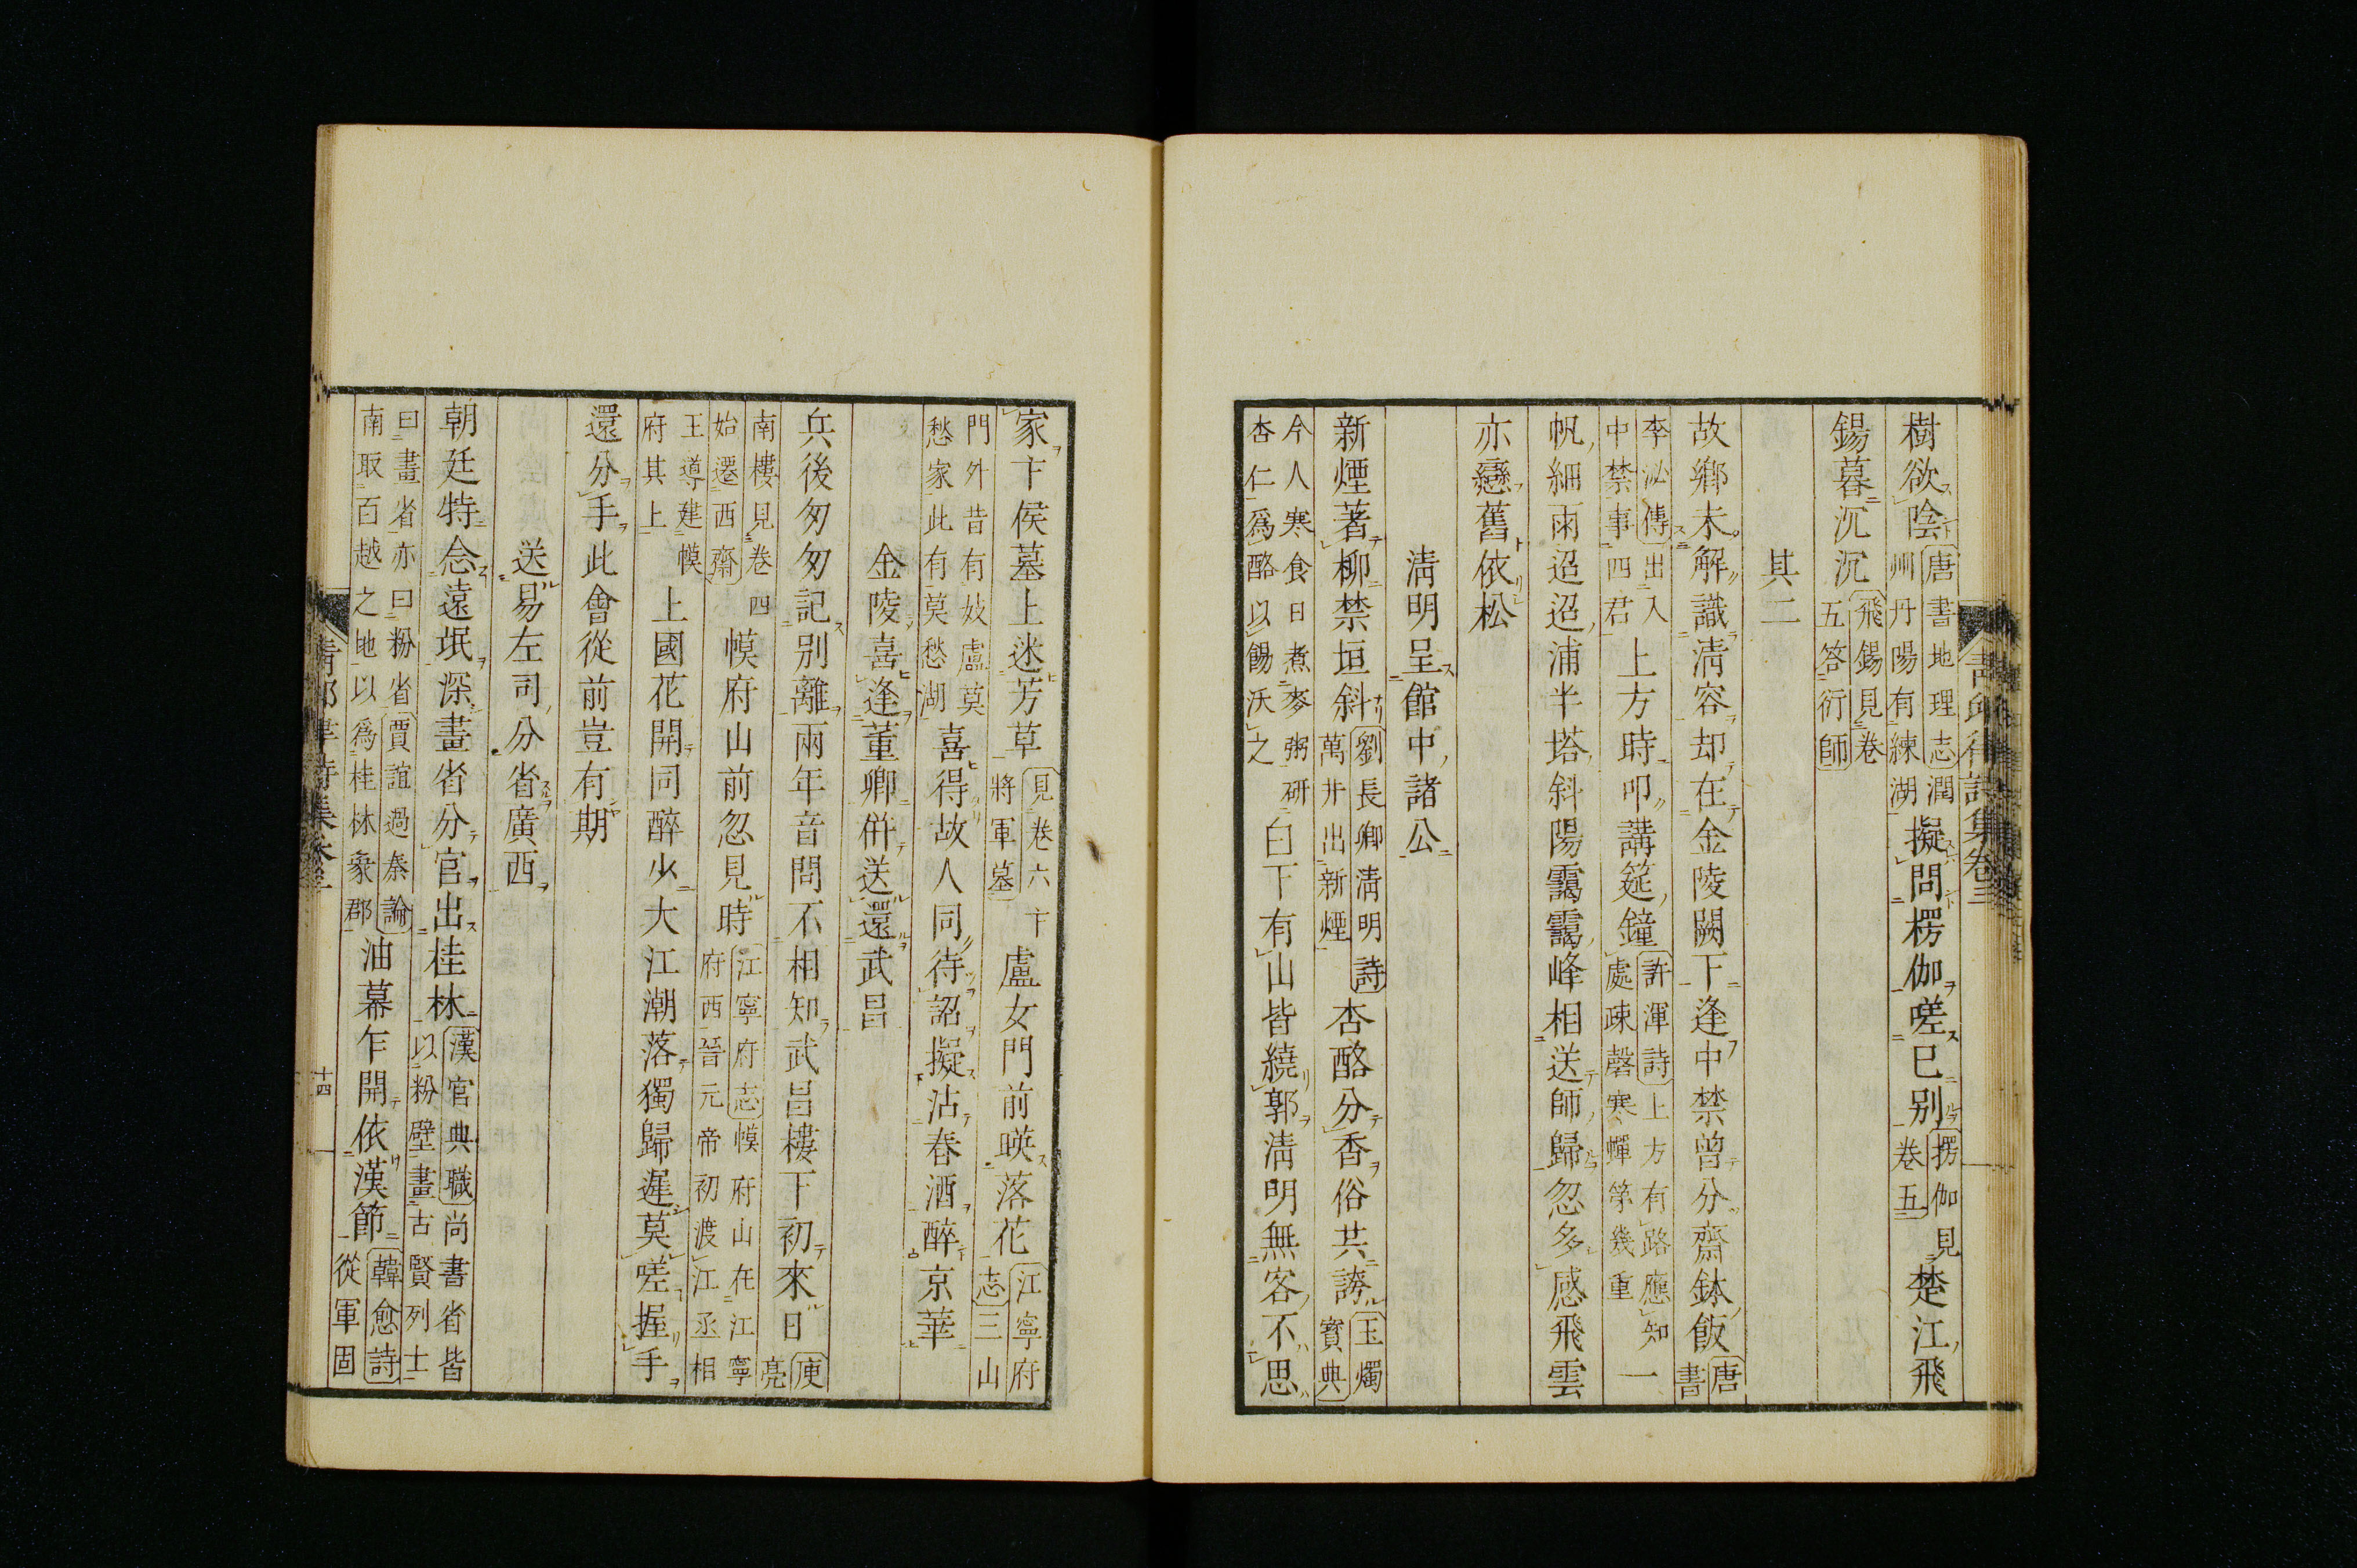 樹欲陰唐書地理志潤州丹陽有練湖擬問楞伽嗟已別楞伽見卷五楚江飛
錫暮沉沉飛錫見卷五答衍師
其二
故鄉未解識淸容却在金陵闕下逢中禁曾分齋鉢飯唐書
李泌傳出入中禁事四君上方時叩講筵鐘許渾詩上方有路應知處疎磬寒蟬第幾重一
帆細雨迢迢浦半塔斜陽靄靄峰相送師歸忽多感飛雲
亦戀舊依松
淸明呈館中諸公
新煙著柳禁垣斜劉長卿淸明詩萬井出新煙杏酪分香俗共誇玉燭寶典
今人寒食日煮麥粥研杏仁爲酪以餳沃之白下有山皆繞郭淸明無客不思
家卞侯墓上迷芳草見卷六卞將軍墓盧女門前暎落花江寧府志三山
門外昔有妓盧莫愁家此有莫愁湖喜得故人同待詔擬沽春酒醉京華
金陵喜逢董卿倂送還武昌
兵後匆匆記別離兩年音問不相知武昌樓下初來日庾亮
南樓見卷四始遷西齋幙府山前忽見時江寧府志幙府山在江寧府西晉元帝初渡江丞相
王導建幙府其上上國花開同醉少大江潮落獨歸遲莫嗟握手
還分手此會從前豈有期
送易左司分省廣西
朝廷特念遠氓深畫省分官出桂林漢官典職尚書省皆以粉壁畫古賢列士
曰畫省亦曰粉省賈誼過秦論南取百越之地以爲桂林象郡油幕乍開依漢節韓愈詩從軍固
十四